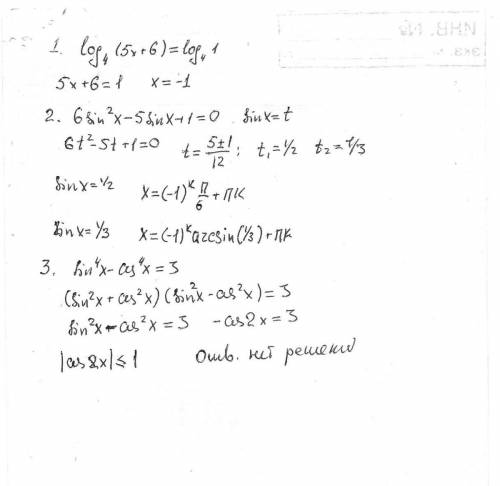 1. log₄(5x+6)=log₄1
5x+6=1 x=-1
2. 6sin²x-5sinx+1=0 sinx=t
6t²-5t+1=0 t=5±1/12; t₁=1/2 t₂=1/3
sinx=1/2 x=(-1)ᴷ П/6+ПК
sinx=1/3 x=(-1)ᴷarcsin(1/3)+ПК
3. sin⁴x-cos⁴x=3
(sin²x+cos²x)(sin²x-cos²x)=3
sin²x-cos²x=3 -cos2x=3
|cos2x|≤1 Отв. нет решений